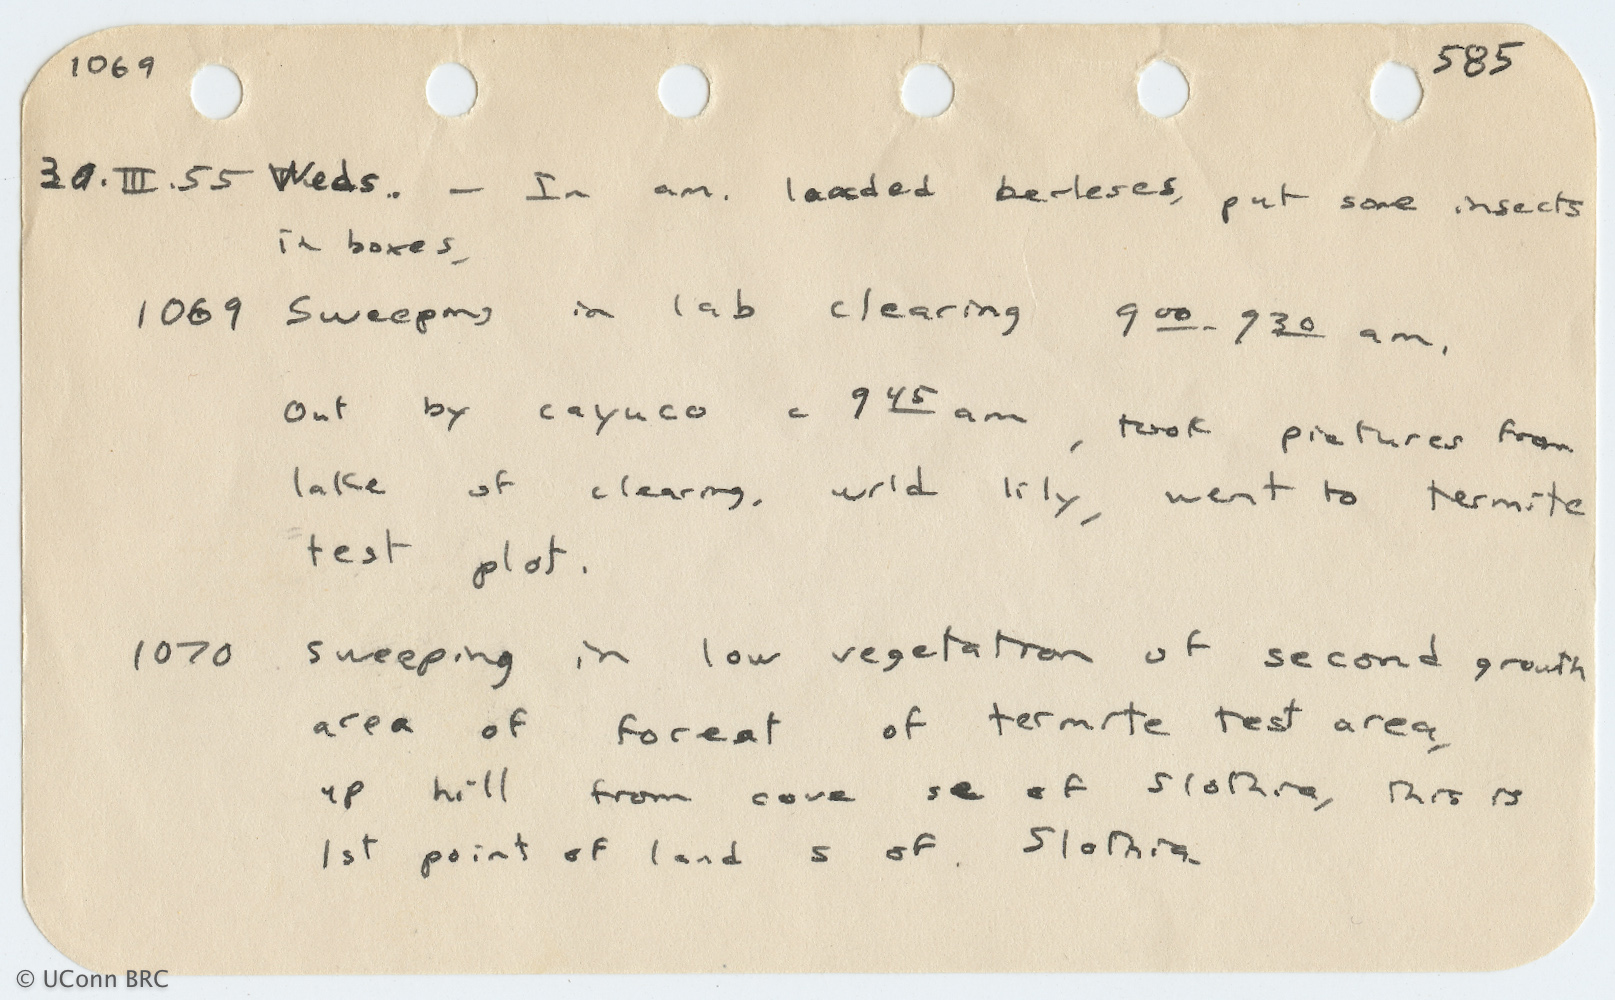 1069 585
30.III.55 Weds. — In am. loaded berleses, put some insects
in boxes,
1069 Sweeping in lab clearing 9 00 - 9 30 am.
Out by cayuco c 9 45 am, took pictures from
lake of clearing, wild lily, went to termite
test plot.
1070 sweeping in low vegetation of second growth
area of forest of termite test area,
up hill from cove se of Slothia, this is
1st point of land s of. Slothia
© UConn BRC